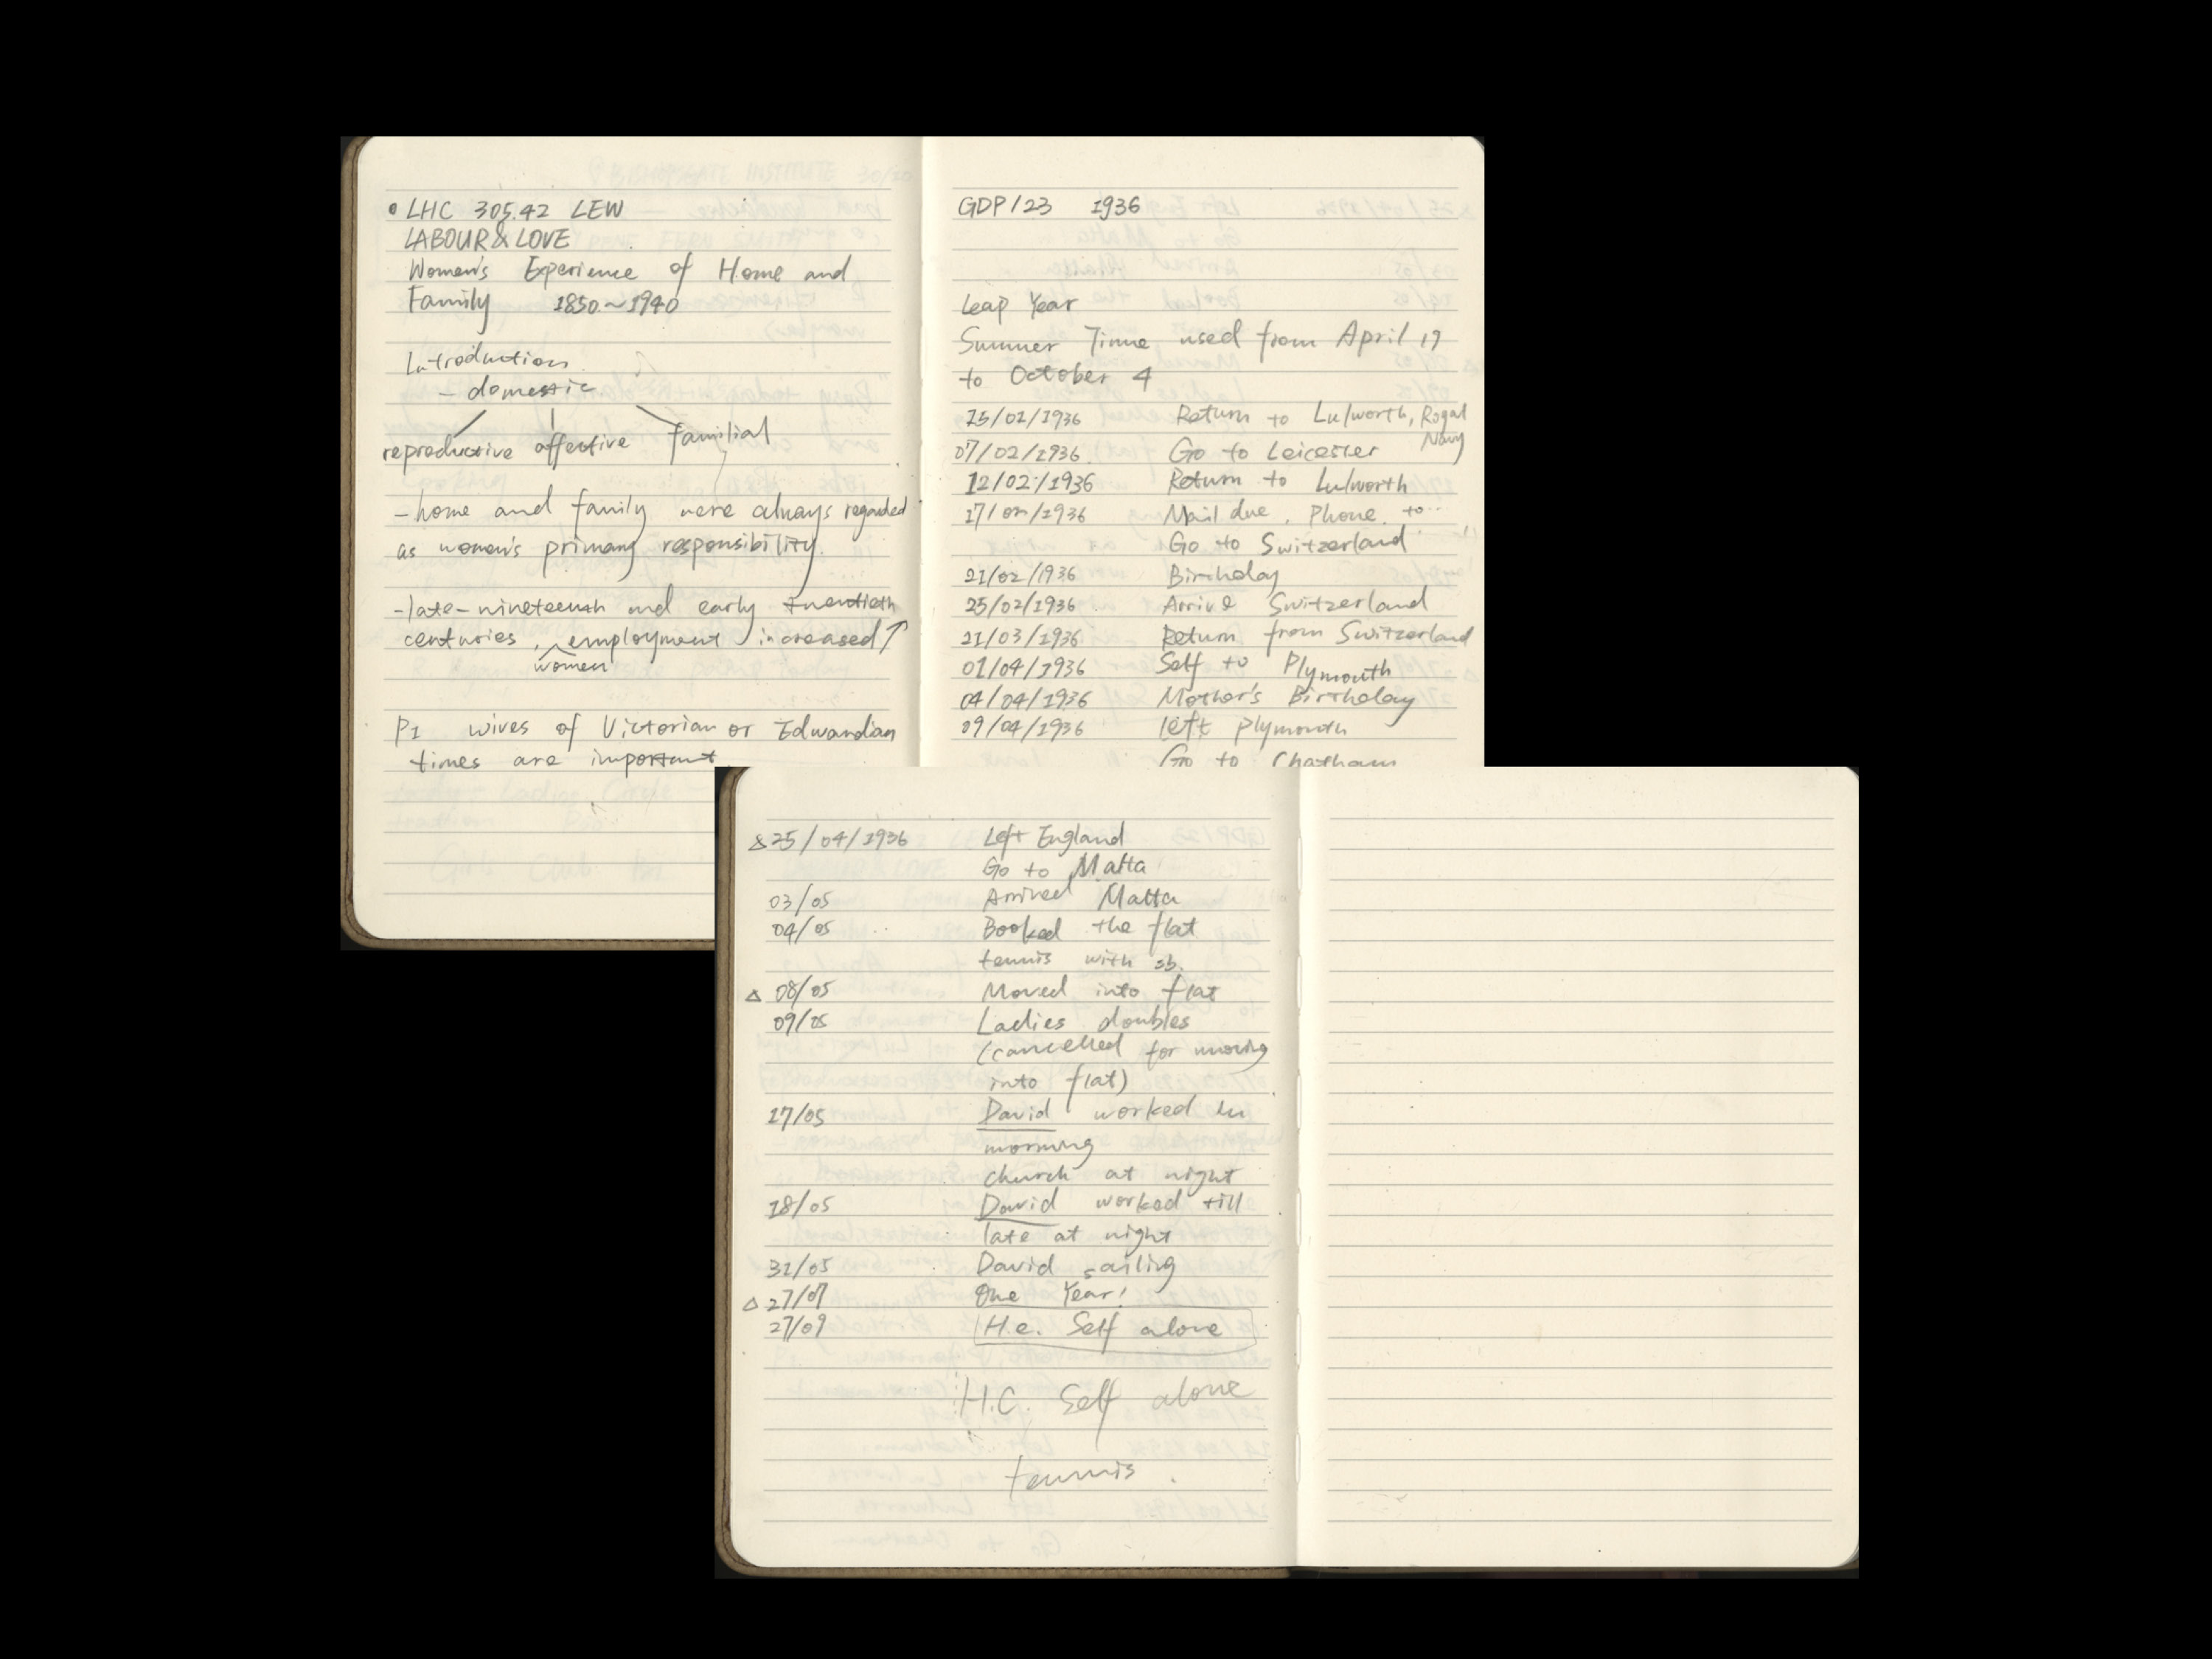 LHC 305.42 LEW
LABOUR & LOVE
Women's Experience of Home and
Family 1850~1940
Introduction
- domestic
reproductive affective familial
- home and family were always regarded
as women's primary responsibility.
- late-nineteenth and early twentieth
centuries, employment increased ↑
women
P1 wives of Victorian or Edwardian
times are important
GDP/23 1936
Leap Year
Summer Time used from April 19
to October 4
15/01/1936 Return to Lulworth, Royal
Navy
07/02/1936 Go to Leicester
12/02/1936 Return to Lulworth
17/02/1936 Mail due, Phone to...
Go to Switzerland
21/02/1936 Birthday
25/02/1936 Arrive Switzerland
21/03/1936 Return from Switzerland
01/04/1936 Self to Plymouth
04/04/1936 Mother's Birthday
09/04/1936 left Plymouth
Go to Chatham
25/04/1936 Left England
Go to Malta
03/05 Arrived Malta
04/05 Booked the flat
tennis with sb.
△ 08/05 Moved into flat
09/05 Ladies doubles
(cancelled for moving
into flat)
17/05 David worked in
morning
church at night
18/05 David worked till
late at night
31/05 David sailing
△ 27/07 One Year!
27/09 H.e. Self alone
H.C. Self alone
tennis.